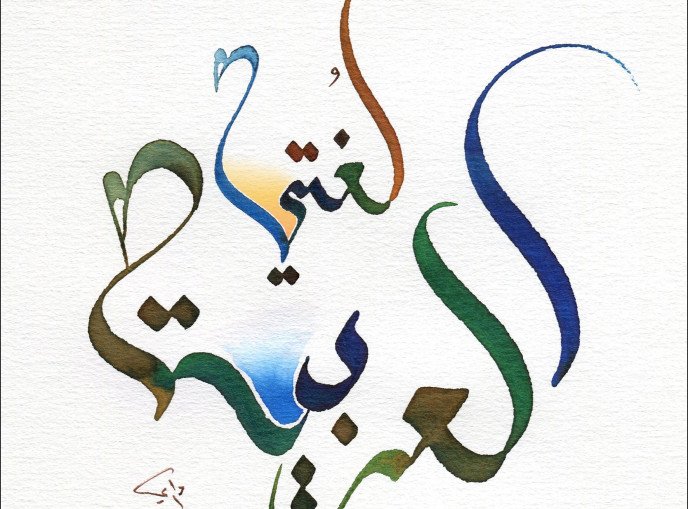 لُغتي
العربية